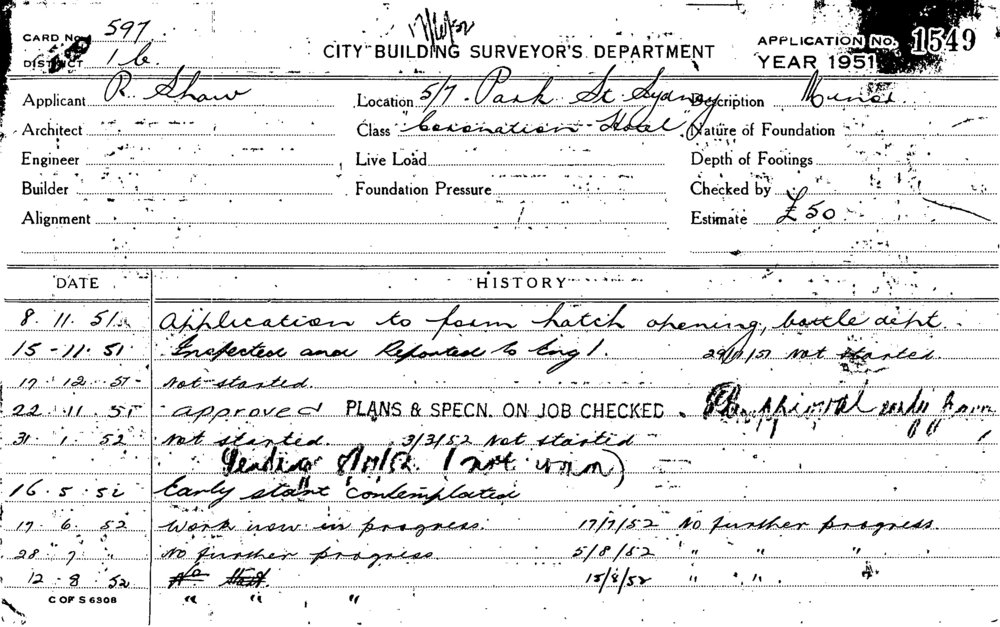 CARD No. 597
17/6/52
CITY BUILDING SURVEYOR'S DEPARTMENT
APPLICATION No. 1549
DISTRICT 1b
YEAR 1951
Applicant R. Shaw
Location 5/7 Park St Sydney
Description Minor
Architect
Class Coronation Hotel
Nature of Foundation
Engineer
Live Load
Depth of Footings
Builder
Foundation Pressure
Checked by
Alignment
Estimate £50
DATE HISTORY
8.11.51 Application to form hatch opening, bottle dept.
15-11-51 Inspected and Reported to Eng. Not started.
17.12.51 Not started.
22.11.51 approved PLANS & SPECN. ON JOB CHECKED.
31.1.52 Not started. 3/3/52 Not started
16.5.52 Early start contemplated
17.6.52 Work now in progress. 17/7/52 No further progress.
28 7 " No further progress. 5/8/52 " " "
12.8.52 15/8/52 " " "
C OF S 6308 " " , "